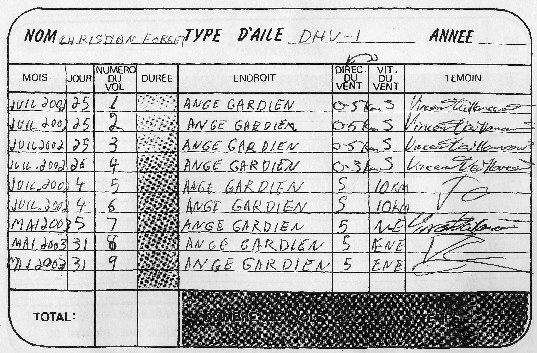 NOM CHRISTIAN FORGET TYPE D'AILE DHV-1 ANNÉE
MOIS JOUR NUMÉRO DU VOL DURÉE ENDROIT DIREC. DU VENT VIT. DU VENT TÉMOIN
JUIL 2002 25 1 ANGE GARDIEN 0-5 km S
JUIL 2002 25 2 ANGE GARDIEN 0-5 km S
JUIL 2002 25 3 ANGE GARDIEN 0-5 km S
JUIL 2002 26 4 ANGE GARDIEN 0-3 km S
JUIL 2002 4 5 ANGE GARDIEN S 10 KM
JUIL 2002 4 6 ANGE GARDIEN S 10 KM
MAI 2003 5 7 ANGE GARDIEN 5 NE
MAI 2003 31 8 ANGE GARDIEN 5 ENE
MAI 2003 31 9 ANGE GARDIEN 5 ENE
TOTAL: